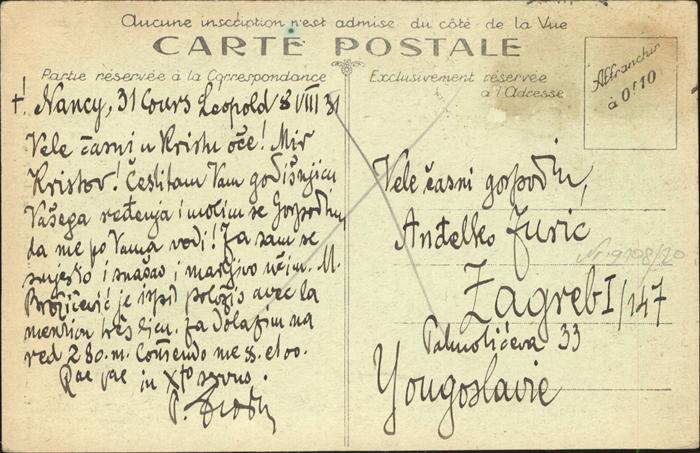 Aucune inscription n'est admise du côté de la Vue
CARTE POSTALE
Partie réservée à la Correspondance
Exclusivement réservée
à l'Adresse
Affranchir
à 0f10
+! Nancy, 31 Cours Leopold 8 VIII 31
Vele časni u Kristu oče! Mir
Kristov! Čestitam Vam godišnjicu
Vašega ređenja i molim se Gospodinu
da me po Vama vodi! Ja sam se
smjestio i snašao i marljivo učim. M.
je ispit položio avec la
mention très bien. Ja dolazim na
red 280.m. Comendo me s. et oo.
Rae Vae in Xto servus.
P.
Vele časni gospodin,
Anđelko Jurić
Zagreb I/147
Palmotićeva 33
Yougoslavie
Nr 19108/20